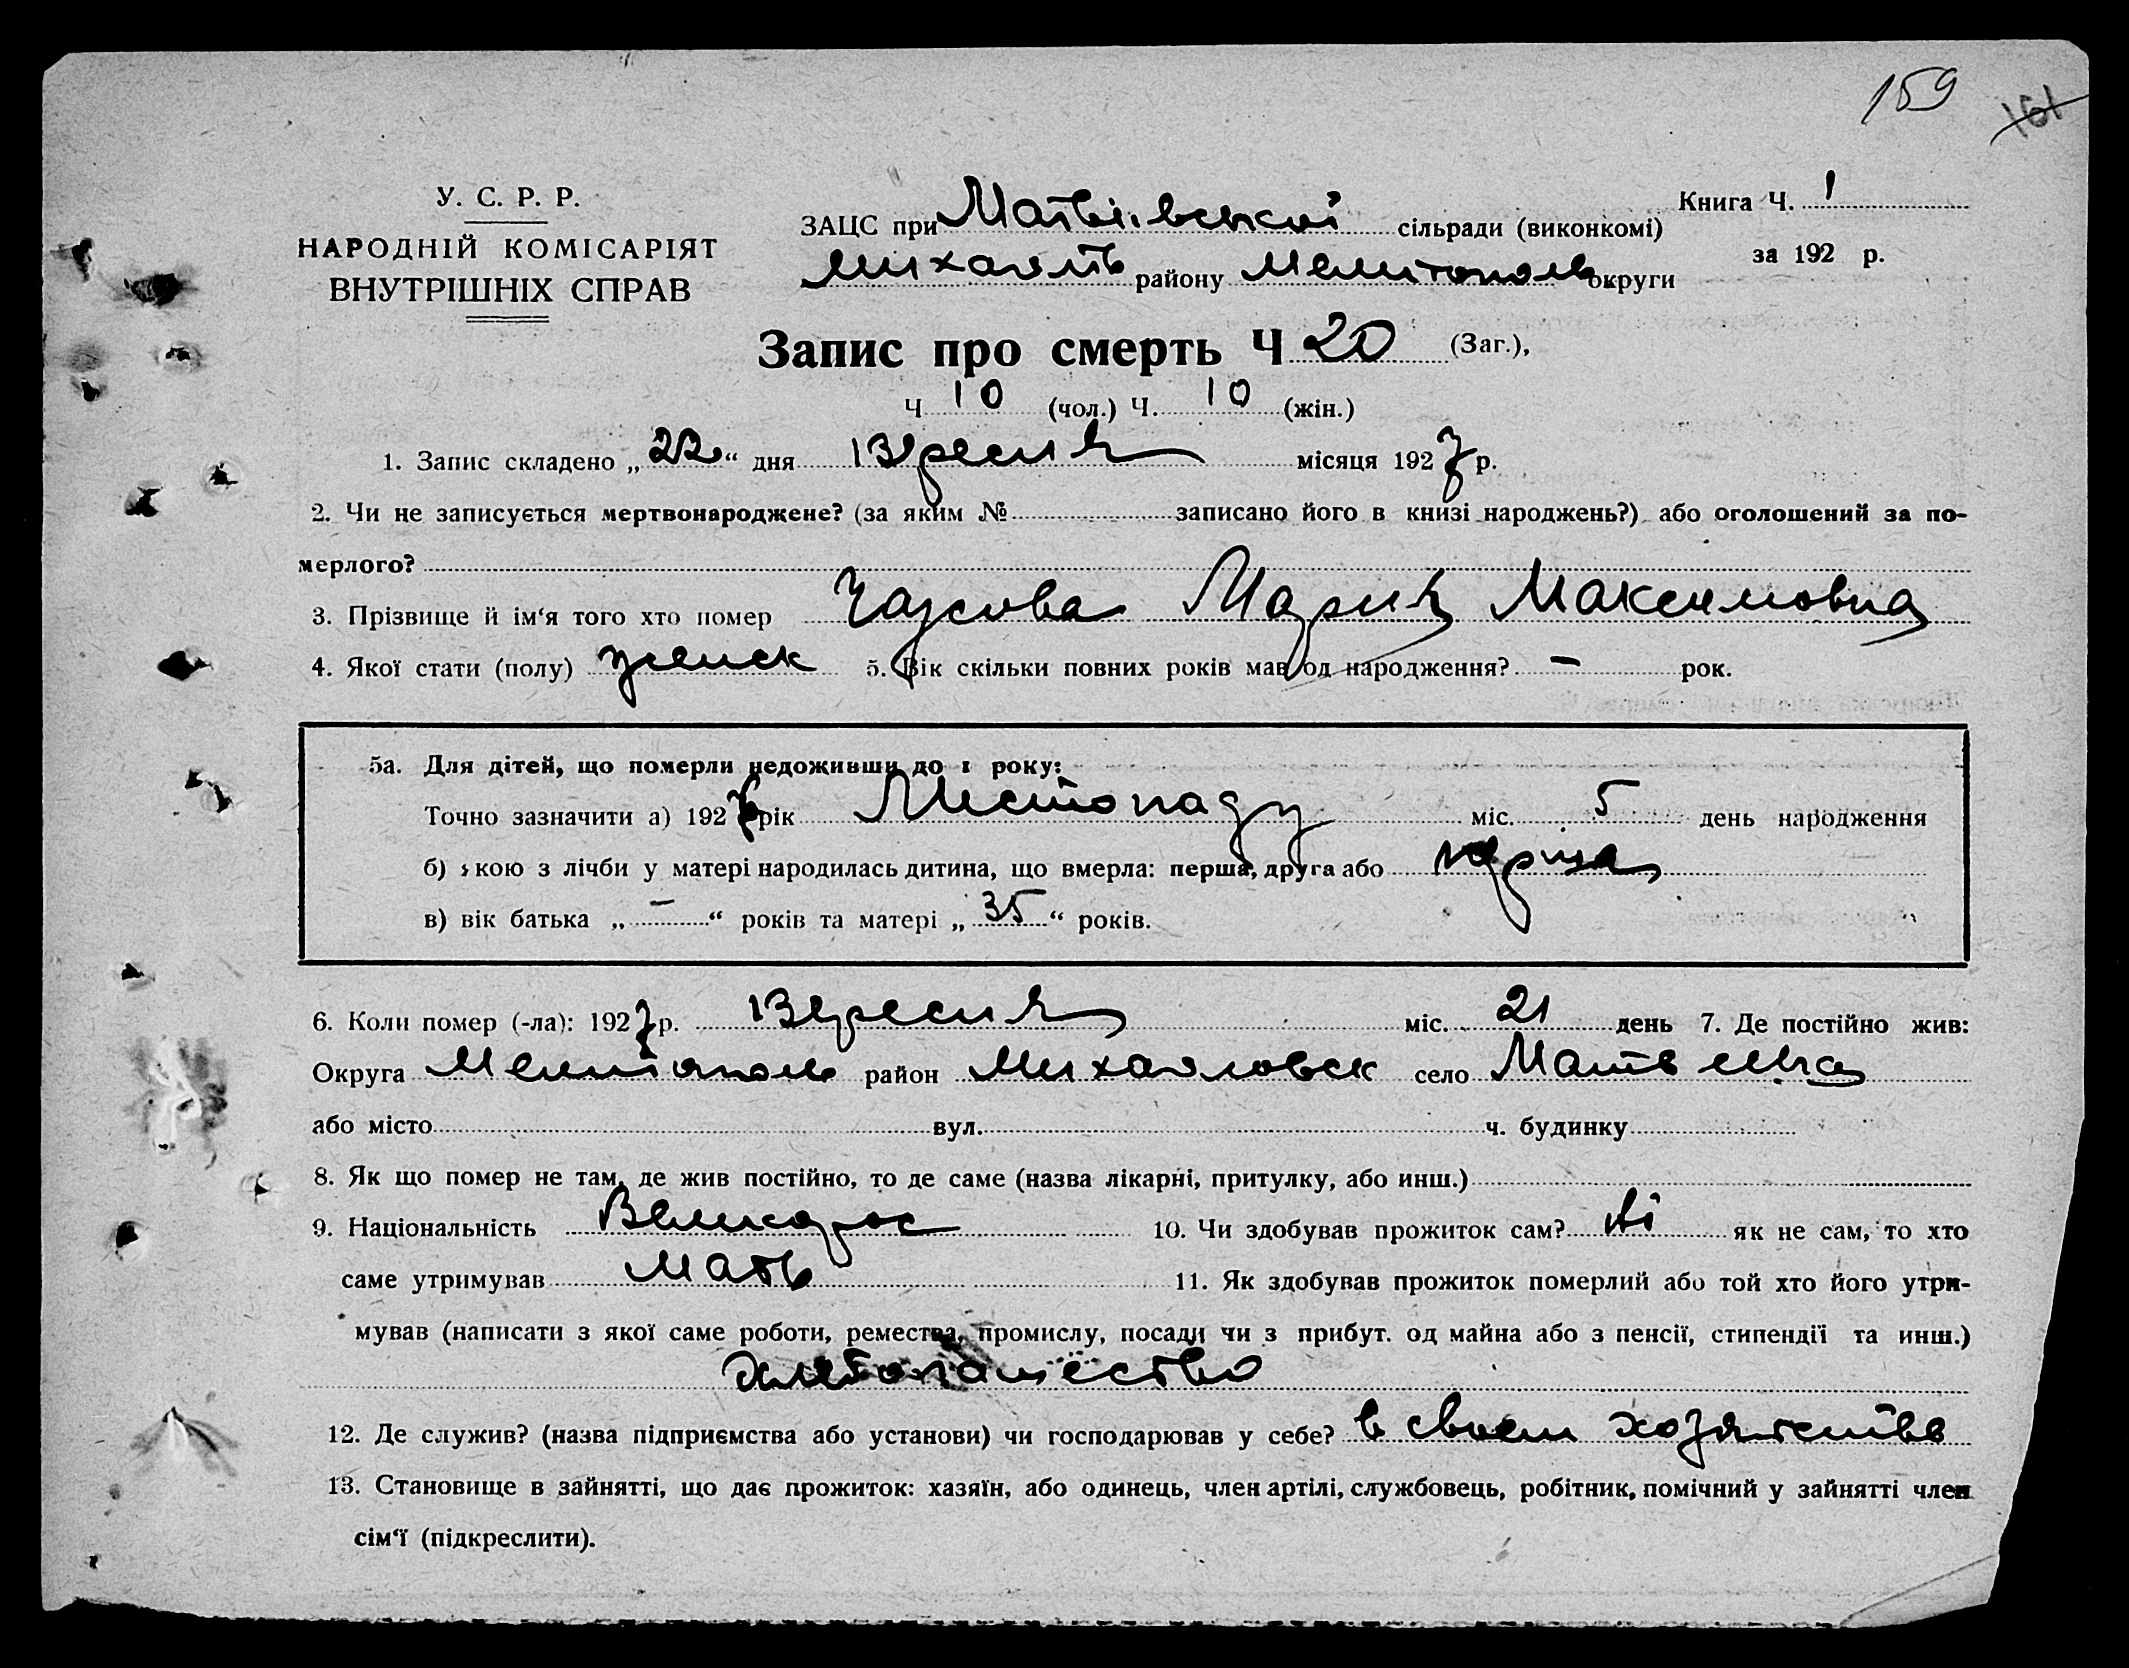 159 161
У. С. Р. Р.
НАРОДНІЙ КОМІСАРІЯТ
ВНУТРІШНІХ СПРАВ
ЗАЦС при Матвіївській сільради (виконкомі) Книга Ч. 1
району Мелитополь округи за 192 р.
Запис про смерть Ч 20 (Заг.),
Ч 10 (чол.) Ч. 10 (жін.)
1. Запис складено „22“ дня Вересня місяця 1927 р.
2. Чи не записується мертвонароджене? (за яким № записано його в книзі народжень?) або оголошений за по-
мерлого?
3. Прізвище й ім‘я того хто помер Чаусова Мария Максимовна
4. Якої стати (полу) женск 5. Вік скільки повних років мав од народження? — рок.
5а. Для дітей, що померли недоживши до 1 року:
Точно зазначити а) 192 рік Листопаду міс. 5 день народження
б) якою з лічби у матері народилась дитина, що вмерла: перша, друга або перша
в) вік батька „—“ років та матері „35“ років.
6. Коли помер (-ла): 1927 р. Вересня міс. 21 день 7. Де постійно жив:
Округа Мелитополь район Михайловск село
або місто вул. ч. будинку
8. Як що помер не там, де жив постійно, то де саме (назва лікарні, притулку, або инш.)
9. Національність Великорос 10. Чи здобував прожиток сам? ні як не сам, то хто
саме утримував мать 11. Як здобував прожиток померлий або той хто його утри-
мував (написати з якої саме роботи, ремества, промислу, посади чи з прибут. од майна або з пенсії, стипендії та инш.)
хлебопашество
12. Де служив? (назва підприємства або установи) чи господарював у себе? в своем хозяйстве
13. Становище в зайнятті, що дає прожиток: хазяїн, або одинець, член артілі, службовець, робітник, помічний у зайнятті член
сім‘ї (підкреслити).